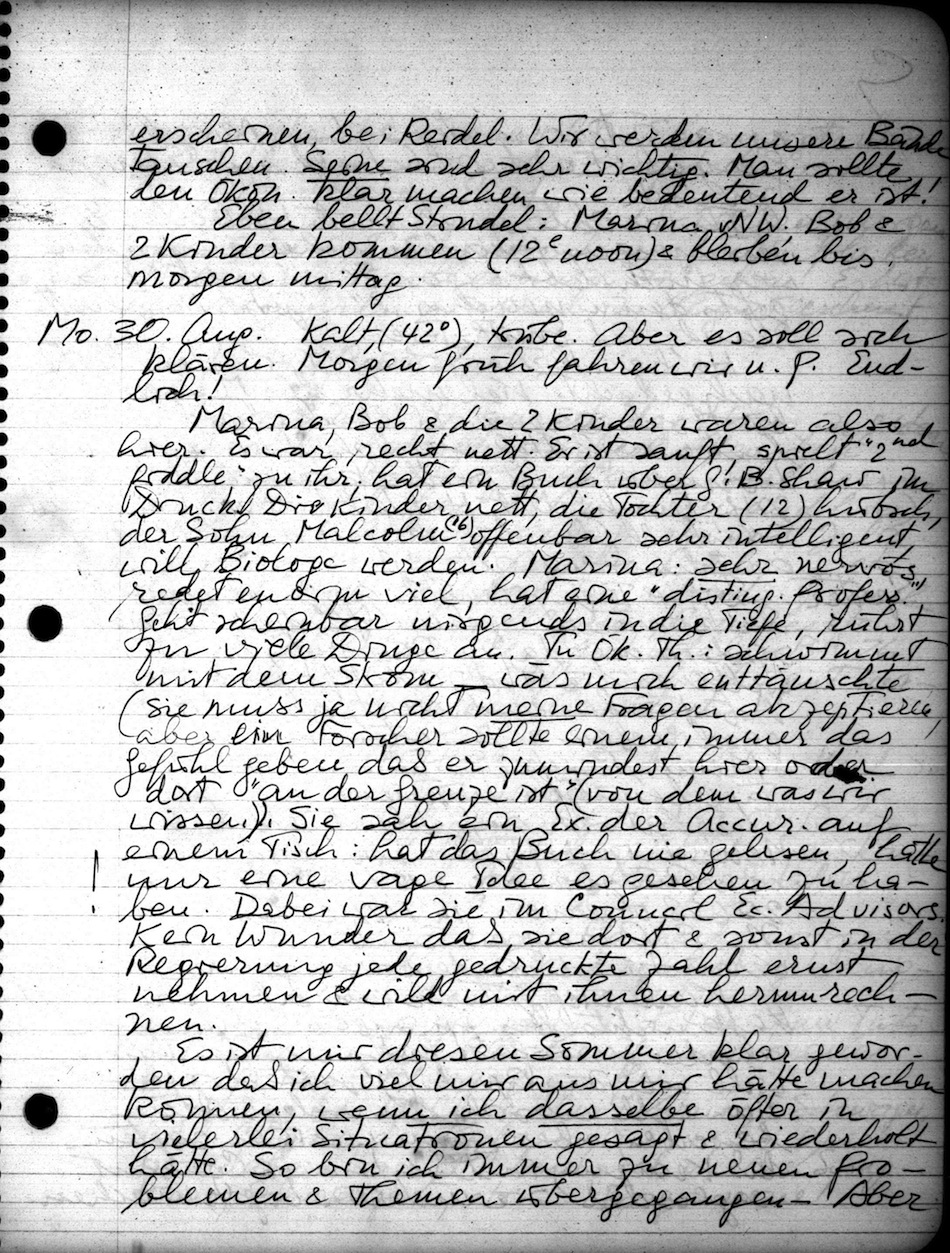 erscheinen, bei Reidel. Wir werden unsere Bände
tauschen. Seine sind sehr wichtig. Man sollte
den Ökon. klar machen wie bedeutend er ist!
Eben bellt Strudel: Marina v.N.W., Bob &
2 Kinder kommen (12e noon) & bleiben bis
morgen mittag.
Mo. 30. Aug. Kalt, (42°), trübe. Aber es soll sich
klären. Morgen früh fahren wir n. P. End-
lich!
Marina, Bob & die 2 Kinder waren also
hier. Es war recht nett. Er ist sanft, spielt "2nd
fiddle" zu ihr, hat ein Buch über G.B. Shaw im
Druck. Die Kinder nett, die Tochter (12) hübsch,
der Sohn Malcolm (16) offenbar sehr intelligent
will Biologe werden. Marina: sehr nervös,
redet enorm viel, hat eine "disting. Profess."
Geht scheinbar nirgends in die Tiefe, rührt
zu viele Dinge an. In Ök. Th.: schwimmt
mit dem Strom – was mich enttäuschte
(sie muss ja nicht meine Fragen akzeptieren,
aber ein Forscher sollte einem immer das
Gefühl geben das er zumindest hier oder
dort "an der Grenze ist" (von dem was wir
wissen)). Sie sah ein Ex. der Accur. auf
einem Tisch: hat das Buch nie gelesen, hätte
! nur eine vage Idee es gesehen zu ha-
ben. Dabei war sie im Council Ec. Advisors.
Kein Wunder das sie dort & sonst in der
Regierung jede gedruckte Zahl ernst
nehmen & wild mit ihnen herumrech-
nen.
Es ist mir diesen Sommer klar gewor-
den das ich viel mir aus mir hätte machen
können, wenn ich dasselbe öfter in
vielerlei Situationen gesagt & wiederholt
hätte. So bin ich immer zu neuen Pro-
blemen & Themen übergegangen – Aber